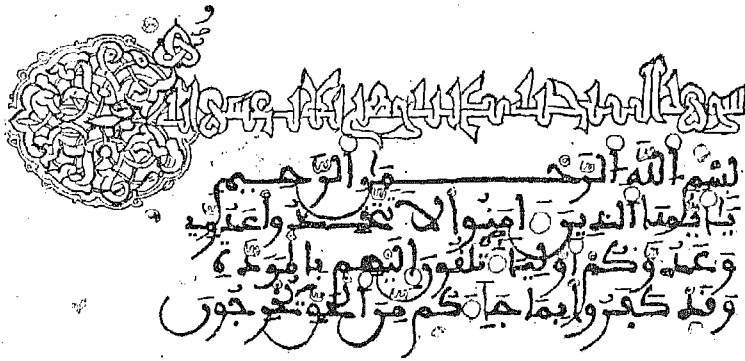 سورة
بِسْمِ اللَّهِ الرَّحْمَٰنِ الرَّحِيمِ
يَٰأَيُّهَا الَّذِينَ ءَامَنُوا لَا تَتَّخِذُوا عَدُوِّي
وَعَدُوَّكُمْ أَوْلِيَاءَ تُلْقُونَ إِلَيْهِم بِالْمَوَدَّةِ
وَقَدْ كَفَرُوا بِمَا جَاءَكُم مِّنَ الْحَقِّ يُخْرِجُونَ